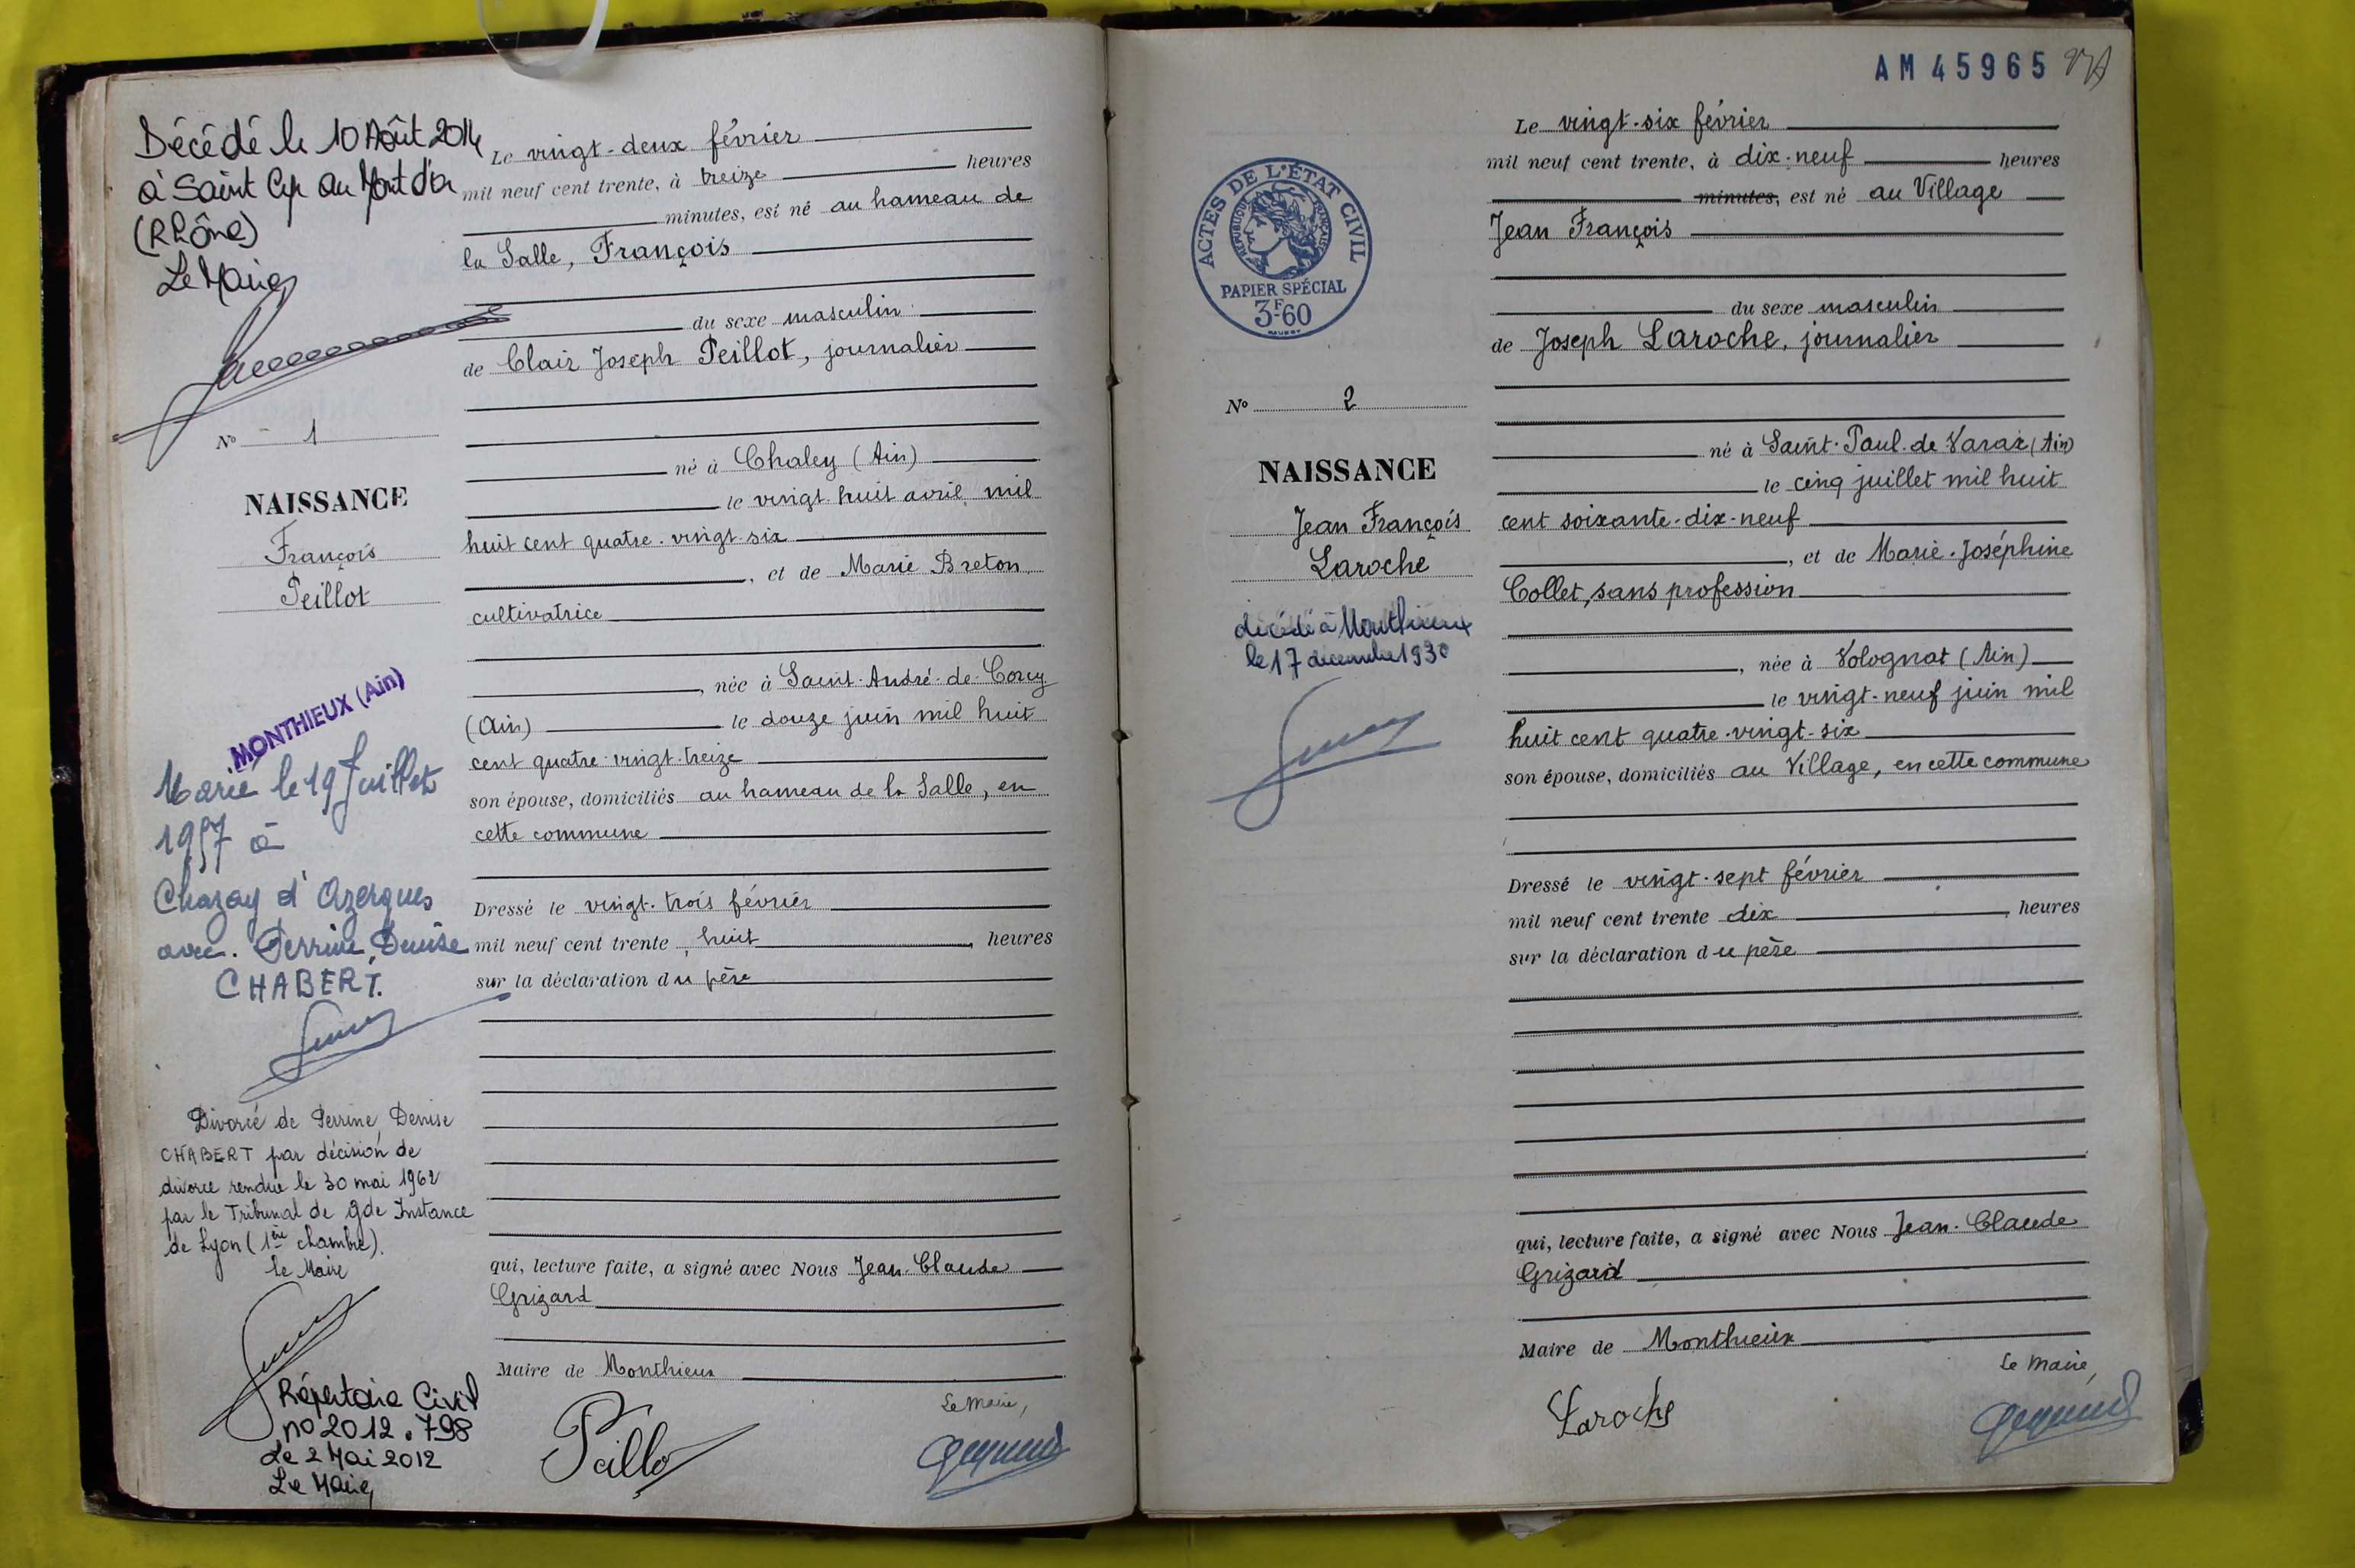 Décédé le 10 Août 2014
à Saint Cyr au Mont d'or
(Rhône)
Le Maire
N° 1
NAISSANCE
François
Peillot
MONTHIEUX (Ain)
Marié le 19 Juillet
1957 à
Chazay d'Azergues
avec. Perrine, Denise
CHABERT.
Divorcé de Perrine, Denise
CHABERT par décision de
divorce rendue le 30 mai 1962
par le Tribunal de gde Instance
de Lyon (1ère chambre).
le Maire
Répertoire Civil
no 2012.798
Le 2 Mai 2012
Le Maire,
Le vingt-deux février
mil neuf cent trente, à treize heures
minutes, est né au hameau de
la Salle, François
du sexe masculin
de Clair Joseph Peillot, journalier
né à Chaley (Ain)
le vingt-huit avril mil
huit cent quatre-vingt-six
, et de Marie Breton,
cultivatrice
, née à Saint-André-de-Corcy
(Ain) le douze juin mil huit
cent quatre-vingt-treize
son épouse, domiciliés au hameau de la Salle, en
cette commune
Dressé le vingt-trois février
mil neuf cent trente, huit, heures
sur la déclaration du père
qui, lecture faite, a signé avec Nous Jean-Claude
Grizard
Maire de Monthieux
Le Maire,
Peillot
AM 45965
ACTES DE L'ÉTAT CIVIL
RÉPUBLIQUE FRANÇAISE
PAPIER SPÉCIAL
3F60
N° 2
NAISSANCE
Jean François
Laroche
décédé à Monthieux
le 17 décembre 1930
Le vingt-six février
mil neuf cent trente, à dix-neuf heures
minutes, est né au Village
Jean François
du sexe masculin
de Joseph Laroche, journalier
né à Saint-Paul-de-Varax (Ain)
le cinq juillet mil huit
cent soixante-dix-neuf
, et de Marie-Joséphine
Collet, sans profession
, née à Volognat (Ain)
le vingt-neuf juin mil
huit cent quatre-vingt-six
son épouse, domiciliés au Village, en cette commune
Dressé le vingt-sept février
mil neuf cent trente dix, heures
sur la déclaration du père
qui, lecture faite, a signé avec Nous Jean-Claude
Grizard
Maire de Monthieux
Le Maire,
Laroche